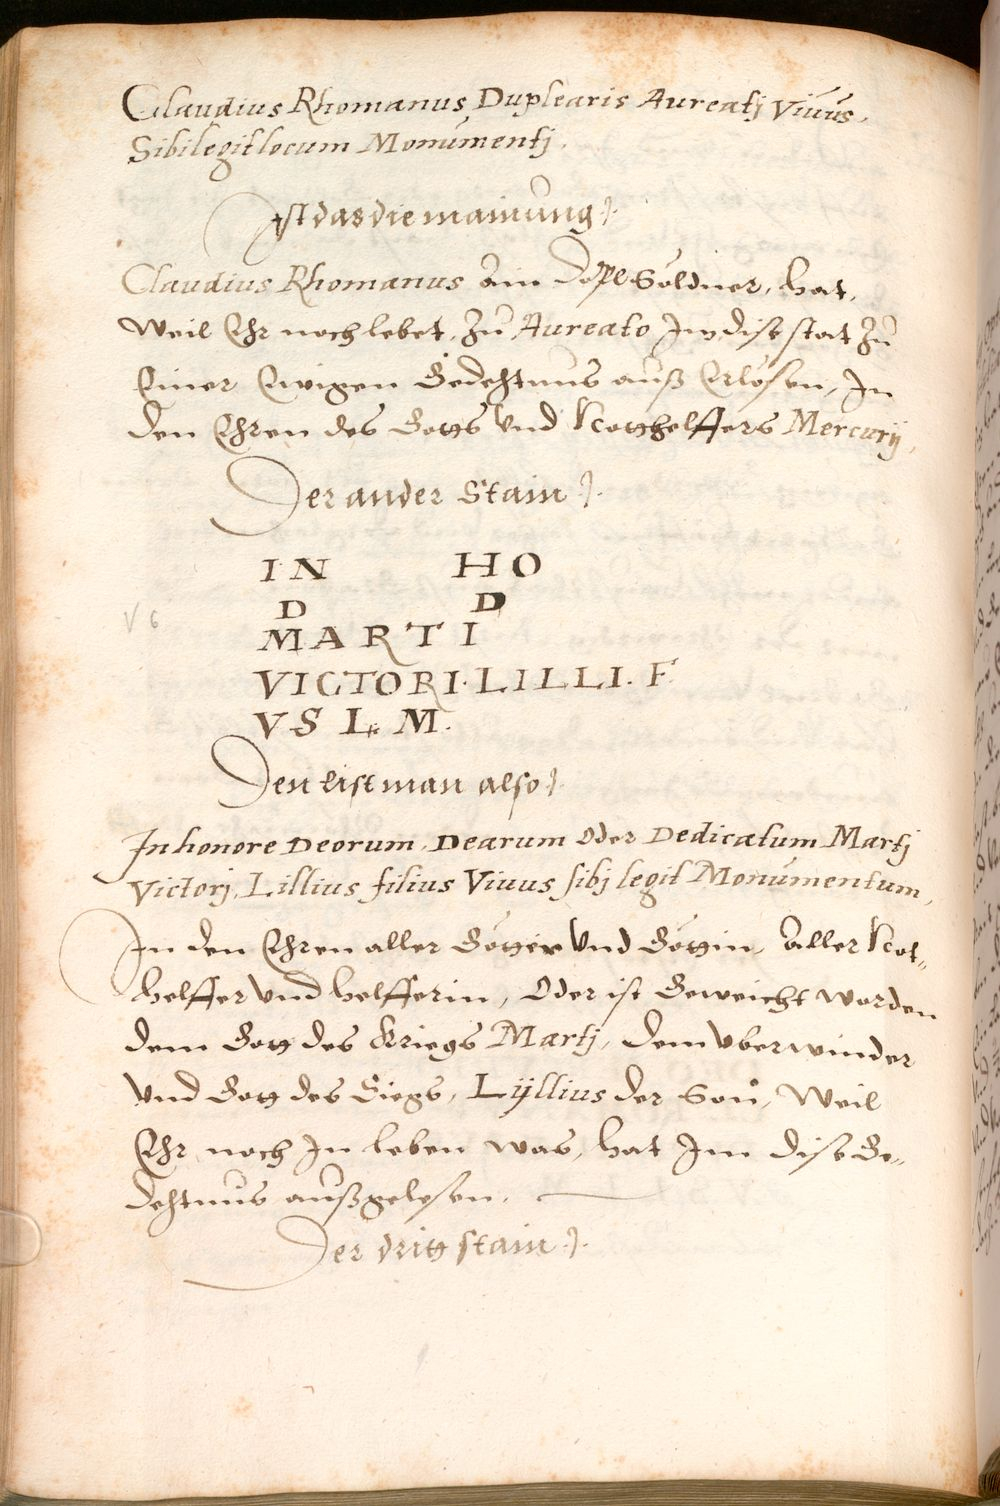 Claudius Rhomanus Duplearis Aureatj Viuus,
Sibi legit locum Monumentj.
Ist das die mainung
Claudius Rhomanus ain Dopl Söldner, hat,
Weil Ehr noch lebet, Zu Aureato Im dise stat Zu
Einer Ewigen Gedehtnus auß Erlösen, In
den Ehren des Gotts Vnd Notthelffers Mercurij,
Der ander Stain
IN HO
D D
MARTI
VICTORI. LILLI. F
VS L. M.
V 6
Den list man also
In honore Deorum, Dearum Oder Dedicatum Martj
Victorj, Lillius filius Viuus sibj legit Monumentum,
In den Ehren aller Götter Vnd Göttin, Aller Not-
helffer Vnd helfferin, Oder ist Geweicht worden
dem Gott des Kriegs Martj, dem Vberwinder
Vnd Gott des Siegs, Lyllius der Son, Weil
Ehr noch In leben was, hat Im dise Ge-
dehtnus außgelesen.
Der dritt stain